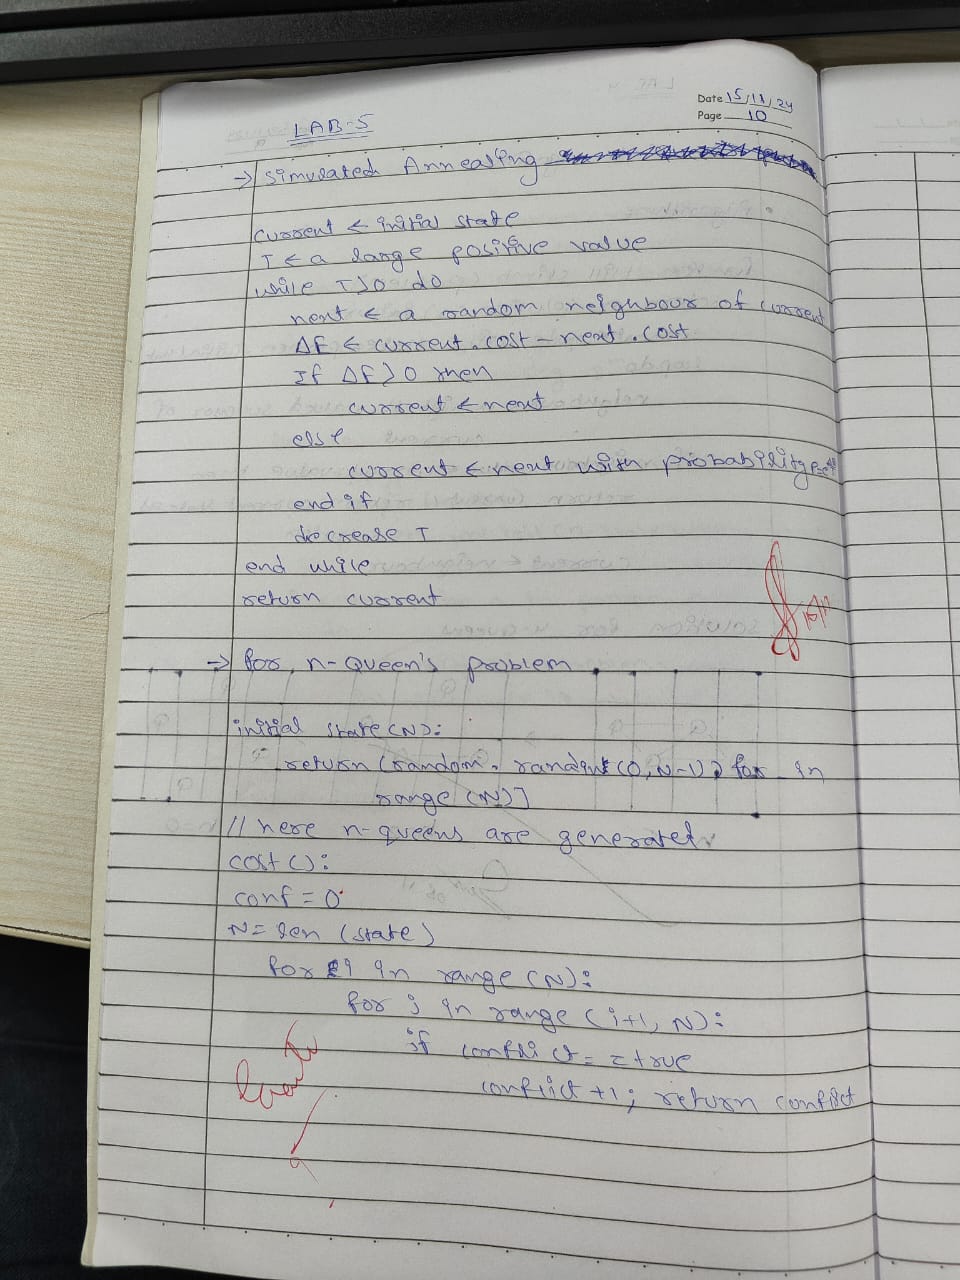 Date 15/11/24
Page 10
LAB-5
→ Simulated Annealing
current ← initial state
T ← a large positive value
while T>0 do
next ← a random neighbour of current
ΔE ← current.cost – next.cost
If ΔE>0 then
current ← next
else
current ← next with probability
end if
decrease T
end while
return current
→ for n-Queen's problem
initial state (N):
return [random.randint(0, N-1) for _ in
range (N)]
// here n-queens are generated
cost():
conf = 0
N = len (state)
for i in range (N):
for j in range (i+1, N):
if conflict = = true
conflict +1; return conflict